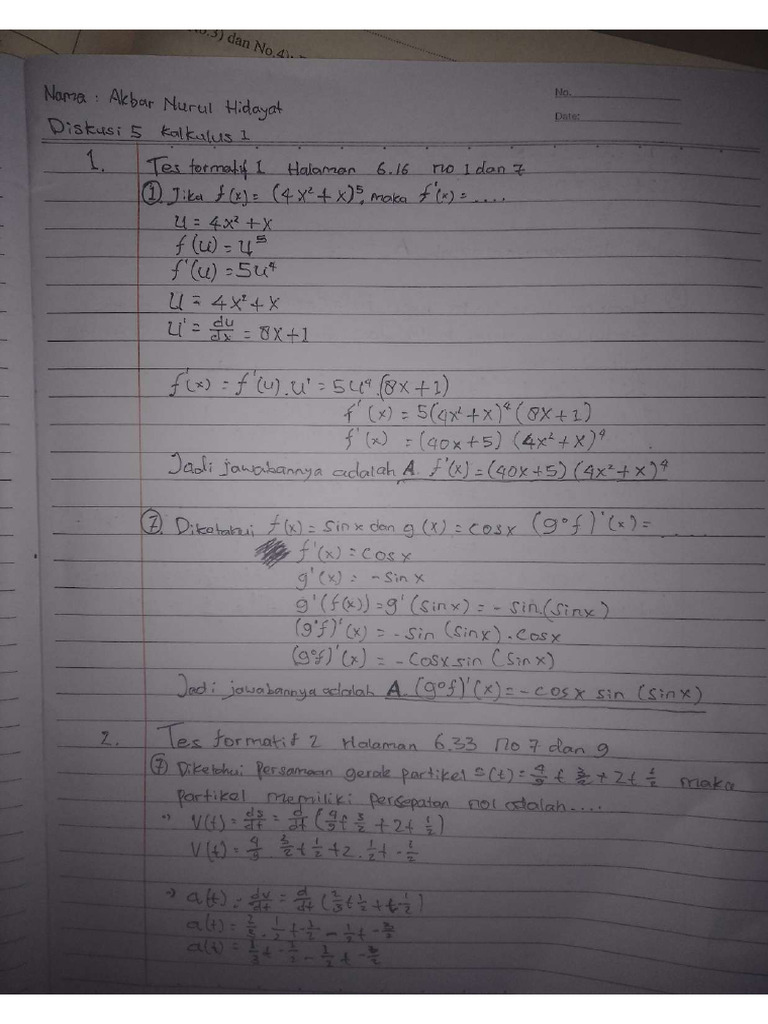 No.3) dan No.4).
Nama : Akbar Nurul Hidayat
No.
Date:
Diskusi 5 Kalkulus 1
1. Tes formatif 1 Halaman 6.16 no 1 dan 7
① Jika f(x) = (4x² + x)⁵, maka f'(x) = .....
u = 4x² + x
f(u) = u⁵
f'(u) = 5u⁴
u = 4x² + x
u' = du/dx = 8x+1
f'(x) = f'(u).u' = 5u⁴.(8x+1)
f'(x) = 5(4x²+x)⁴(8x+1)
f'(x) = (40x+5) (4x²+x)⁴
Jadi jawabannya adalah A. f'(x) = (40x+5) (4x²+x)⁴
⑦ Diketahui f(x) = sin x dan g(x) = cosx (g∘f)'(x) = .....
f'(x) = cosx
g'(x) = -sin x
g'(f(x)) = g'(sinx) = -sin(sinx)
(g∘f)'(x) = -sin (sinx).cosx
(g∘f)'(x) = -cosx sin (sinx)
Jadi jawabannya adalah A. (g∘f)'(x) = -cosx sin (sinx)
2. Tes formatif 2 Halaman 6.33 no 7 dan 9
⑦ Diketahui Persamaan gerak partikel s(t) = 4/9 t 3/2 + 2t 1/2 maka
partikel memiliki persepatan nol adalah....
V(t) = ds/dt = d/dt (4/9 t 3/2 + 2t 1/2)
V(t) = 4/9 . 3/2 t 1/2 + 2 . 1/2 t -1/2
a(t) = dv/dt = d/dt (2/3 t 1/2 + t -1/2)
a(t) = 2/3 . 1/2 t -1/2 - 1/2 t -3/2
a(t) = 1/3 t -1/2 - 1/2 t -3/2